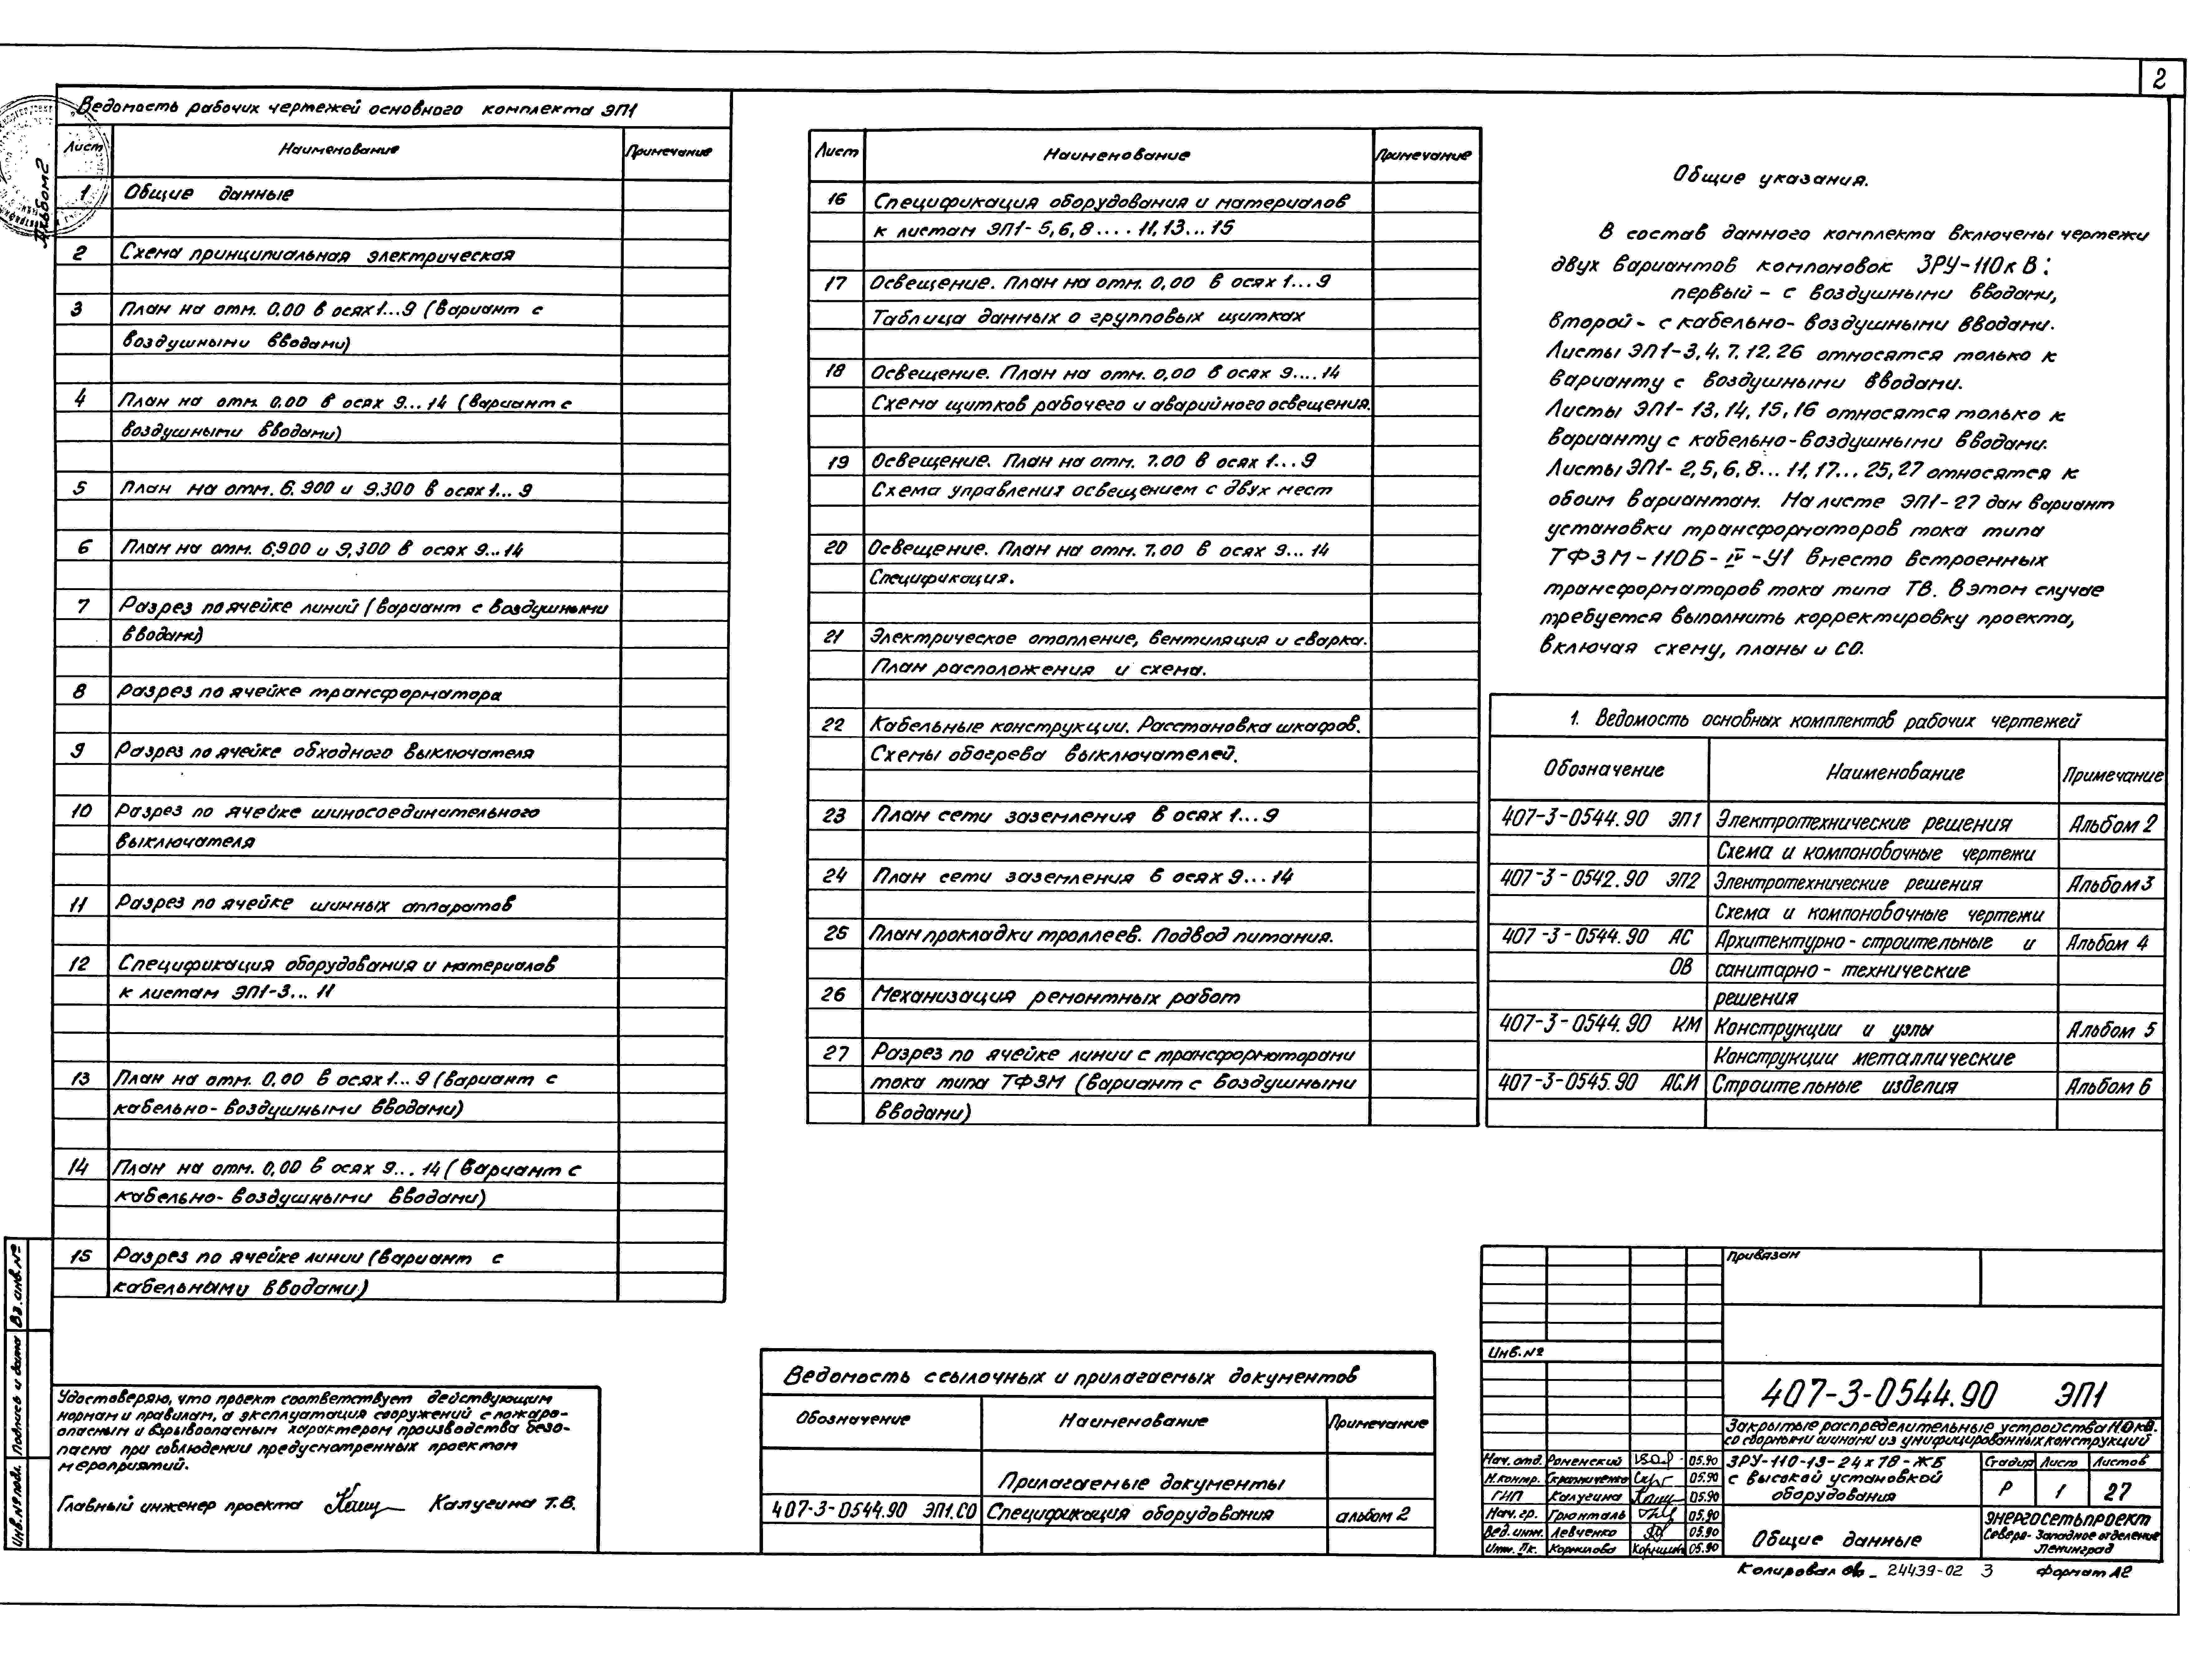 2
Альбом 2
Ведомость рабочих чертежей основного комплекта ЭП1
Лист Наименование Примечание
1 Общие данные
2 Схема принципиальная электрическая
3 План на отм. 0.00 в осях 1...9 (вариант с
воздушными вводами)
4 План на отм. 0.00 в осях 9...14 (вариант с
воздушными вводами)
5 План на отм. 6.900 и 9.300 в осях 1...9
6 План на отм. 6.900 и 9,300 в осях 9...14
7 Разрез по ячейке линий (вариант с воздушными
вводами)
8 Разрез по ячейке трансформатора
9 Разрез по ячейке обходного выключателя
10 Разрез по ячейке шиносоединительного
выключателя
11 Разрез по ячейке шинных аппаратов
12 Спецификация оборудования и материалов
к листам ЭП1-3...11
13 План на отм. 0,00 в осях 1...9 (вариант с
кабельно-воздушными вводами)
14 План на отм. 0,00 в осях 9...14 (вариант с
кабельно-воздушными вводами)
15 Разрез по ячейке линии (вариант с
кабельными вводами)
Лист Наименование Примечание
16 Спецификация оборудования и материалов
к листам ЭП1-5,6,8....11,13...15
17 Освещение. План на отм. 0,00 в осях 1...9
Таблица данных о групповых щитках
18 Освещение. План на отм. 0,00 в осях 9....14
Схема щитков рабочего и аварийного освещения.
19 Освещение. План на отм. 7.00 в осях 1...9
Схема управления освещением с двух мест
20 Освещение. План на отм. 7.00 в осях 9...14
Спецификация.
21 Электрическое отопление, вентиляция и сварка.
План расположения и схема.
22 Кабельные конструкции. Расстановка шкафов.
Схемы обогрева выключателей.
23 План сети заземления в осях 1...9
24 План сети заземления в осях 9...14
25 План прокладки троллеев. Подвод питания.
26 Механизация ремонтных работ
27 Разрез по ячейке линии с трансформаторами
тока типа ТФЗМ (вариант с воздушными
вводами)
Общие указания.
В состав данного комплекта включены чертежи
двух вариантов компоновок ЗРУ-110кВ:
первый - с воздушными вводами,
второй - с кабельно-воздушными вводами.
Листы ЭП1-3,4,7,12,26 относятся только к
варианту с воздушными вводами.
Листы ЭП1-13,14,15,16 относятся только к
варианту с кабельно-воздушными вводами.
Листы ЭП1-2,5,6,8...11,17...25,27 относятся к
обоим вариантам. На листе ЭП1-27 дан вариант
установки трансформаторов тока типа
ТФЗМ-110Б-IV-У1 вместо встроенных
трансформаторов тока типа ТВ. В этом случае
требуется выполнить корректировку проекта,
включая схему, планы и СО.
1. Ведомость основных комплектов рабочих чертежей
Обозначение Наименование Примечание
407-3-0544.90 ЭП1 Электротехнические решения Альбом 2
Схема и компоновочные чертежи
407-3-0542.90 ЭП2 Электротехнические решения Альбом 3
Схема и компоновочные чертежи
407-3-0544.90 АС Архитектурно-строительные и Альбом 4
ОВ санитарно-технические
решения
407-3-0544.90 КМ Конструкции и узлы Альбом 5
Конструкции металлические
407-3-0545.90 АС.И Строительные изделия Альбом 6
Удостоверяю, что проект соответствует действующим
нормам и правилам, а эксплуатация сооружений с пожаро-
опасным и взрывоопасным характером производства безо-
пасна при соблюдении предусмотренных проектом
мероприятий.
Главный инженер проекта Калугина Т.В.
Ведомость ссылочных и прилагаемых документов
Обозначение Наименование Примечание
Прилагаемые документы
407-3-0544.90 ЭП1.СО Спецификация оборудования альбом 2
Привязан
Инв.№
407-3-0544.90 ЭП1
Закрытые распределительные устройства 110кВ.
со сборными шинами из унифицированных конструкций
Нач. отд. Роменский 05.90
Н.контр. 05.90
ГИП Калугина 05.90
Нач. гр. Грюнталь 05.90
Вед. инж. Левченко 05.90
Корнилова 05.90
ЗРУ-110-13-24х78-ЖБ
с высокой установкой
оборудования
Общие данные
Стадия Лист Листов
Р 1 27
ЭНЕРГОСЕТЬПРОЕКТ
Северо-Западное отделение
Ленинград
Копировал 24439-02 3 Формат А2
Инв.№ подл. Подпись и дата Вз.инв.№